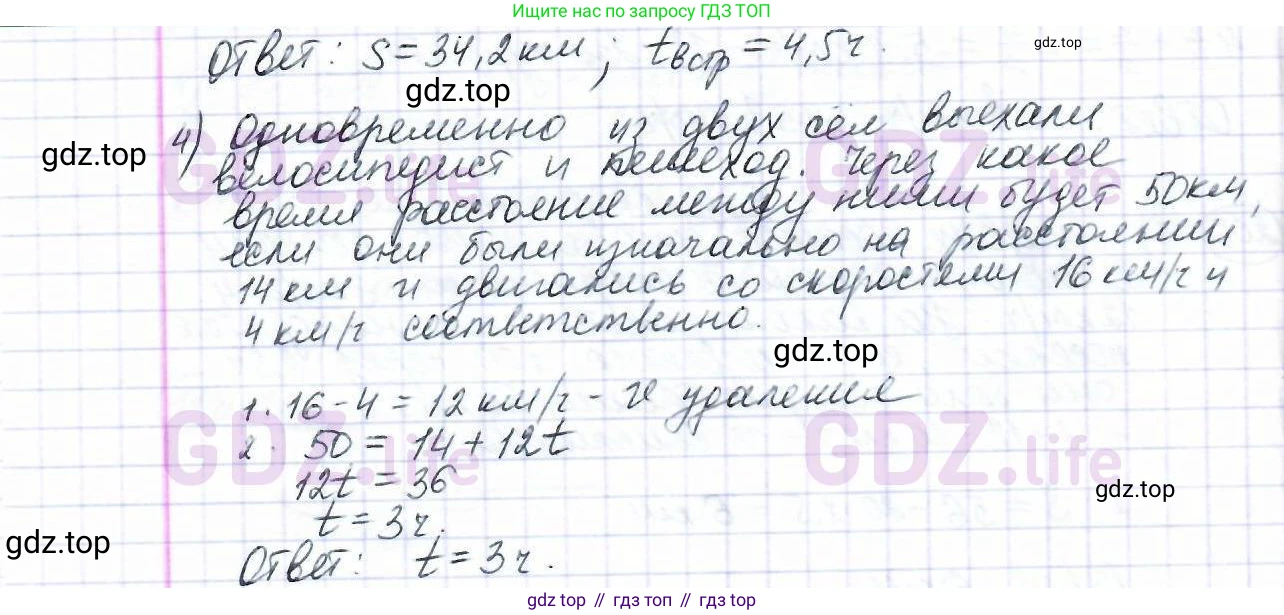 Ищите нас по запросу ГДЗ ТОП
Ответ: S = 34,2 км ; tвстр = 4,5 ч.
gdz.top
gdz.top
4) Одновременно из двух сёл выехали
gdz.top
велосипедист и пешеход. Через какое
время расстояние между ними будет 50 км,
если они были изначально на расстоянии
14 км и двигались со скоростями 16 км/ч и
4 км/ч соответственно.
gdz.top
1. 16 - 4 = 12 км/ч - υ удаления
2. 50 = 14 + 12t
12t = 36
gdz.top
t = 3 ч.
gdz.top
Ответ: t = 3 ч.
GDZ.life
GDZ.life
GDZ.life
GDZ.life
gdz top // гдз топ // гдз top